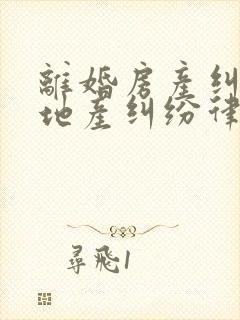 離婚房產糾
地產糾紛律
尋飛1